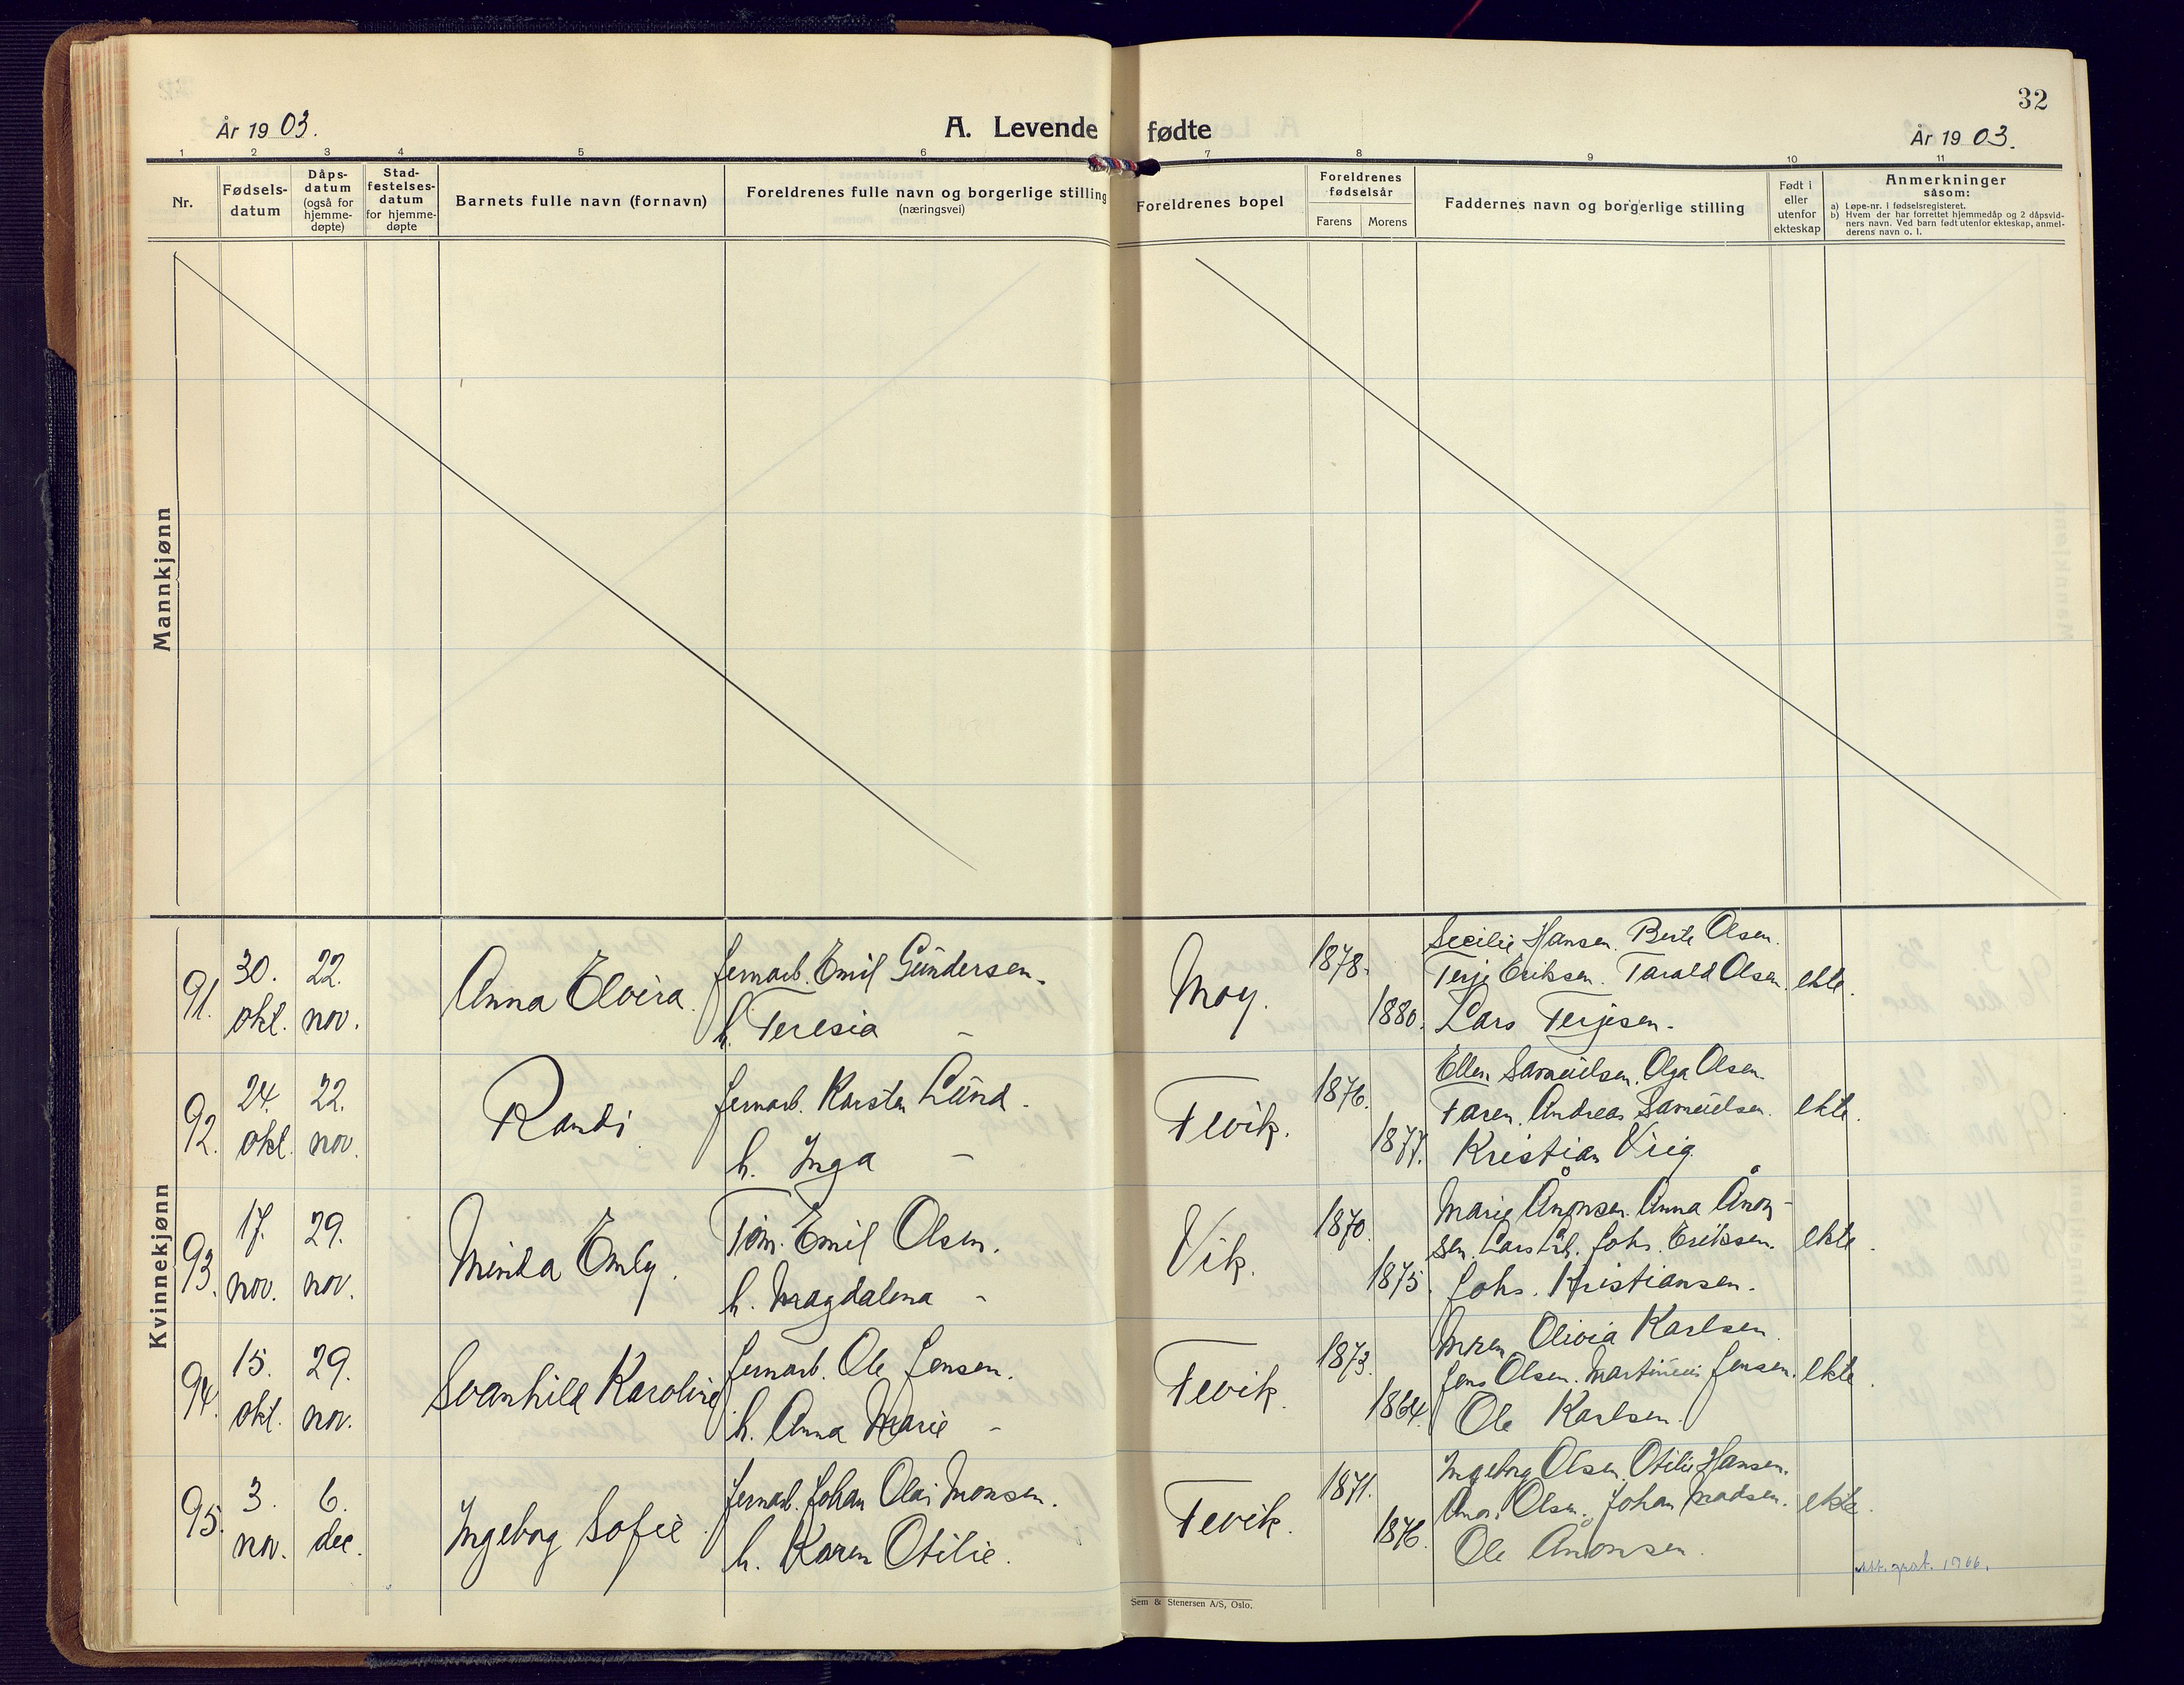 32
År 1903.
A. Levende fødte
År 1903.
1 2 3 4 5 6 7 8 9 10 11
Nr.
Fødsels-
datum
Dåps-
datum
(også for
hjemme-
døpte)
Stad-
festelses-
datum
for hjemme-
døpte
Barnets fulle navn (fornavn)
Foreldrenes fulle navn og borgerlige stilling
(næringsvei)
Foreldrenes bopel
Foreldrenes
fødselsår
Farens Morens
Faddernes navn og borgerlige stilling
Født i
eller
utenfor
ekteskap
Anmerkninger
såsom:
a) Løpe-nr. i fødselsregisteret.
b) Hvem der har forrettet hjemmedåp og 2 dåpsvid-
ners navn. Ved barn født utenfor ekteskap, anmel-
derens navn o. l.
Mannkjønn
Kvinnekjønn
91.
30.
okt.
22.
nov.
Anna Elvira.
jernarb. Emil Gundersen.
h. Teresia -
Moy.
1878.
1880.
Secilie Hansen. Berte Olsen.
Terje Eriksen. Tarald Olsen.
Lars Terjesen.
ekte.
92.
24.
okt.
22.
nov.
Randi
jernarb. Karsten Lund.
h. Inga -
Fevik.
1876.
1877.
Ellen Samuelsen. Olga Olsen.
Faren. Andreas Samuelsen.
Kristian Vrig.
ekte.
93.
17.
nov.
29.
nov.
Minda Emly.
Tøm. Emil Olsen.
h. Magdalena -
Vik.
1870.
1875.
Marie Ånonsen. Anna Ånon-
sen. Lars Johs. Eriksen.
Johs. Kristiansen.
ekte.
94.
15.
okt.
29.
nov.
Svanhild Karoline
jernarb. Ole Jensen.
h. Anna Marie -
Fevik.
1873.
1864.
Olivia Karlsen.
Jens Olsen. Martinius Jensen.
Ole Karlsen.
ekte.
95.
3.
nov.
6.
dec.
Ingeborg Sofie.
jernarb. Johan Olai Monsen.
h. Karen Otilie.
Fevik.
1871.
1876.
Ingeborg Olsen. Otilie Hansen.
Olsen. Johan Madsen.
Ole Ånonsen.
ekte.
1966.
Sem & Stenersen A/S, Oslo.